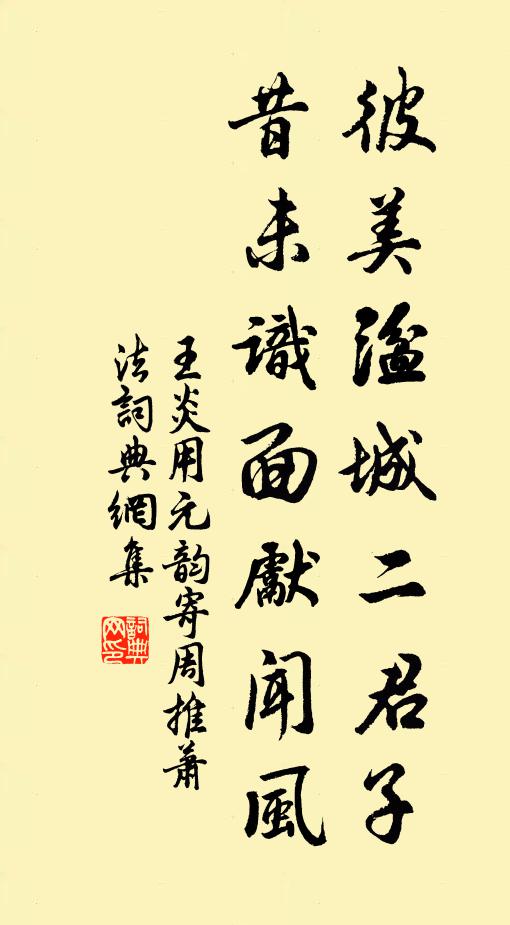 彼美湓城二君子
昔未識面獻聞風
王炎用元韵寄周推蕭
法詞典網集
詞典网印